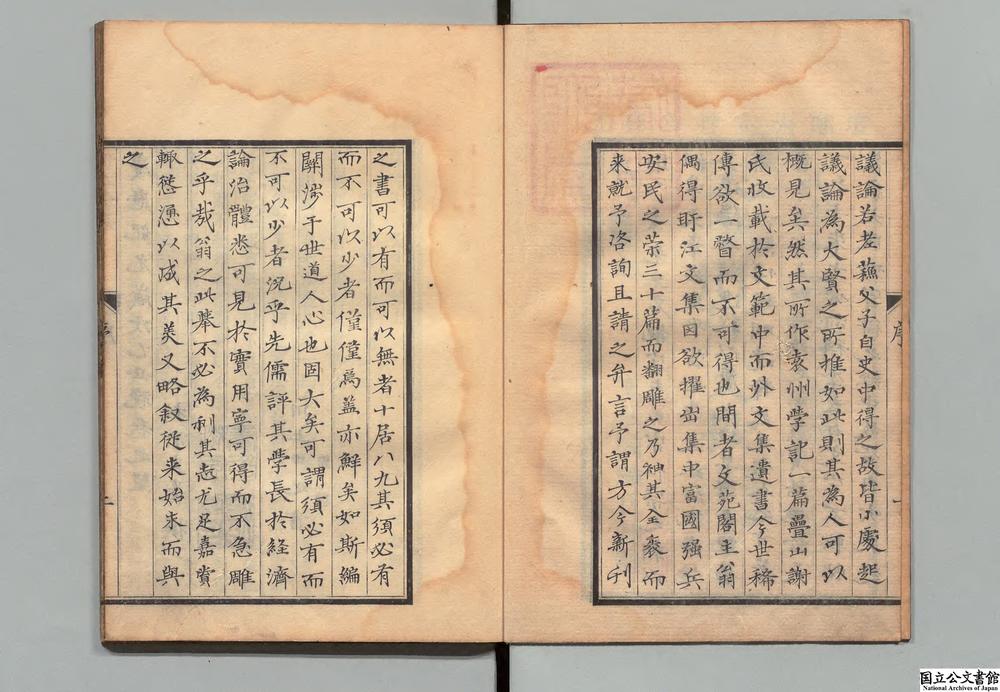 議論若老蘓父子自史中得之故皆小處起
議論為大賢之所推如此則其為人可以
概見矣然其所作袁州學記一篇疊山謝
氏收載於文範中而外文集遺書今世稀
傳欲一瞥而不可得也間者文苑閣主翁
偶得盱江文集因欲擢出集中富國强兵
安民之策三十篇而翻雕之乃袖其全袠而
来就予咨詢且請之弁言予謂方今新刊
序
之書可以有而可以無者十居八九其須必有
而不可以少者僅僅為蓋亦鮮矣如斯編
關渉于世道人心也固大矣可謂須必有而
不可以少者況乎先儒評其學長於経濟
論治體悉可見於實用寧可得而不急雕
之乎哉翁之此擧不必為利其志尤足嘉賞
輙慫慂以成其美又略叙従来始末而與
之
序
二
国立公文書館
National Archives of Japan